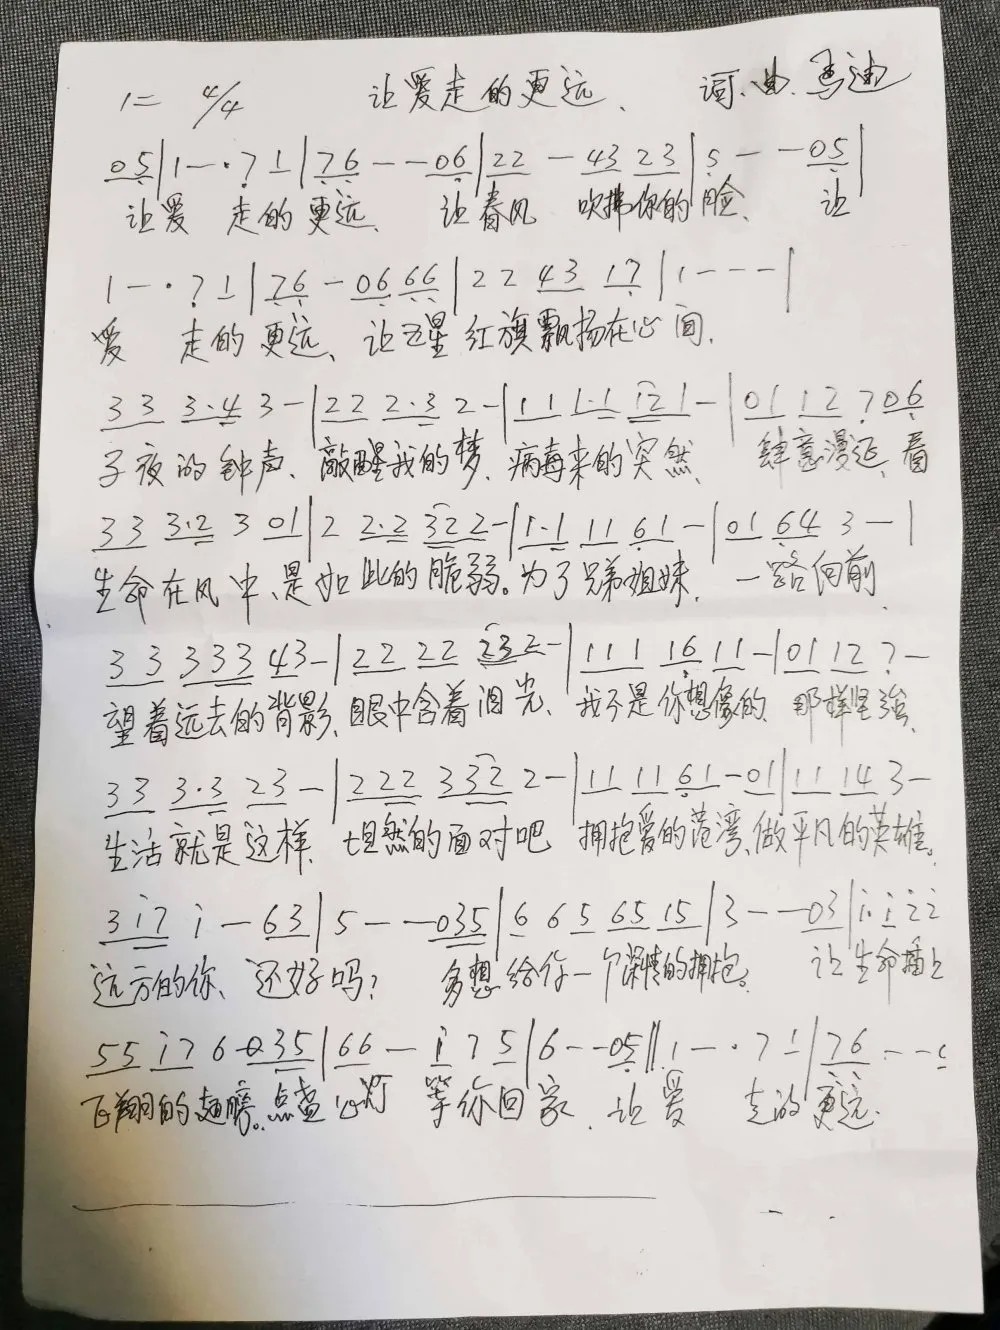 1= 4/4 让爱走的更远、 词、曲、马迪
05|1--·71|76---06|22-4323|5---05|
让爱 走的更远、 让春风 吹拂你的脸、 让
1--·71|76-0666|224317|1---|
爱 走的更远、让五星红旗飘扬在心间.
333·43-|222·32-|111·1121-|0112706
子夜的钟声、敲醒我的梦、病毒来的突然、 肆意漫延、看
333·2301|22·23222-|1·11161-|01643-|
生命在风中、是如此的脆弱。为了兄弟姐妹、 一路向前、
3333343-|2222232-|1111611-|01127-
望着远去的背影、眼中含着泪光、我不是你想像的、那样坚强、
333·323-|2223322-|111161-01|11143-
生活就是这样、坦然的面对吧 拥抱爱的港湾、做平凡的英雄。
3i7i-63|5---035|6656515|3---03|i·i22
远方的你、还好吗? 多想给你一个深情的拥抱。 让生命插上
55i76-035|66-i75|6---05‖1--·71|76---
飞翔的翅膀。点盏心灯 等你回家、让爱 走的更远.